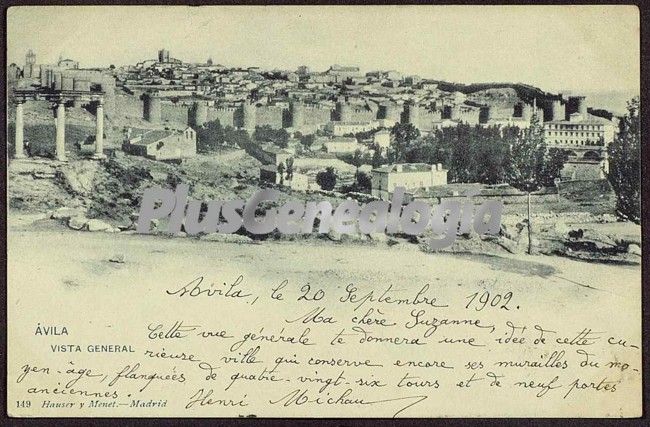 PlusGenealogía
Avila, le 20 Septembre 1902.
Ma chère Suzanne,
Cette vue générale te donnera une idée de cette cu-
rieuse ville qui conserve encore ses murailles du mo-
yen-âge, flanquées de quatre-vingt-six tours et de neuf portes
anciennes. Henri Michau
ÁVILA
VISTA GENERAL
149 Hauser y Menet.-Madrid